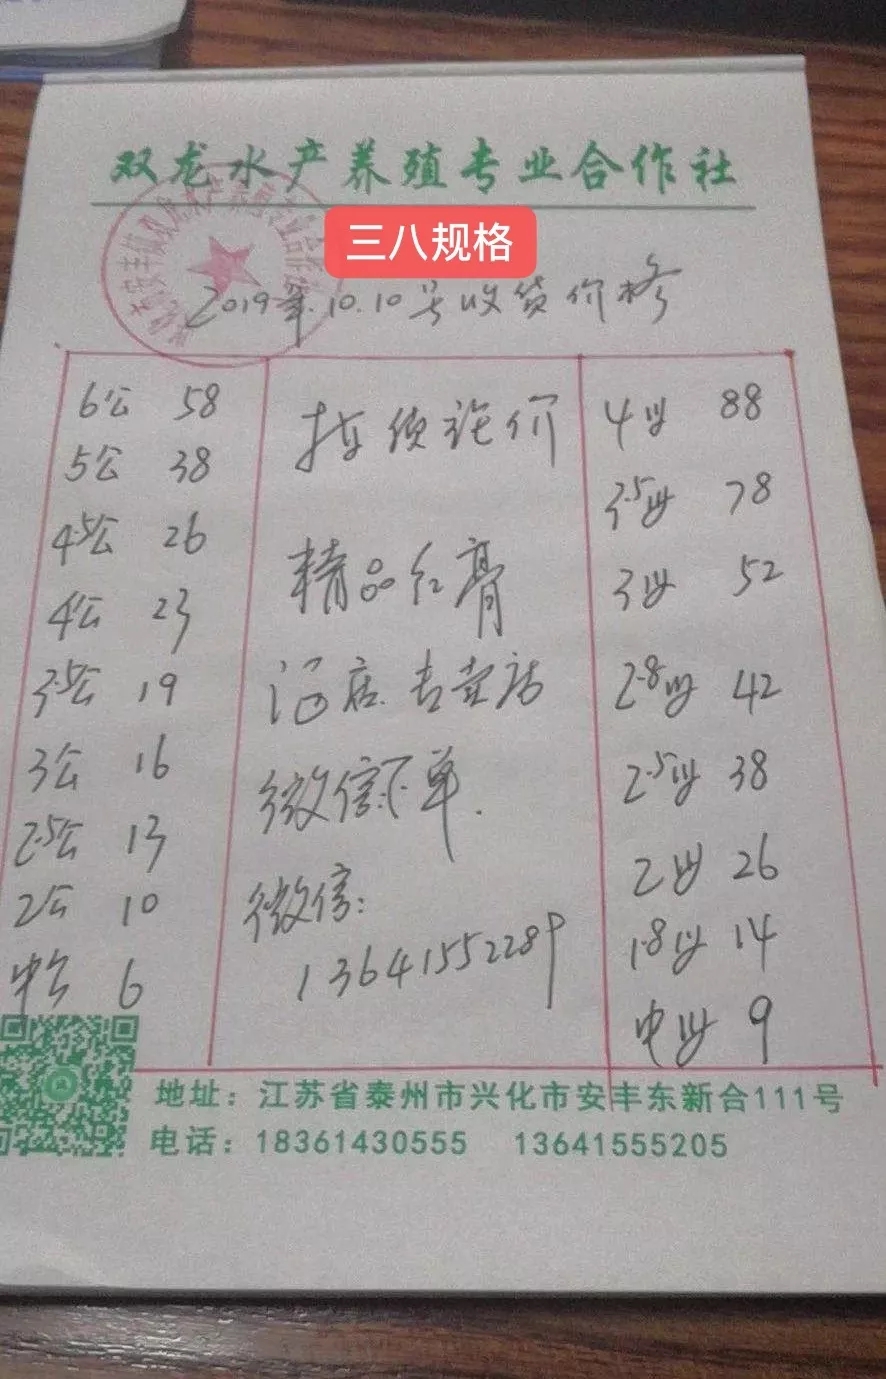 双龙水产养殖专业合作社
三八规格
2019年.10.10号收货价格
6公 58
5公 38
4.5公 26
4公 23
3.5公 19
3公 16
2.5公 13
2公 10
中公 6
按质论价
精品红膏
酒店.专卖店
微信下单.
微信:
13641552289
4母 88
3.5母 78
3母 52
2.8母 42
2.5母 38
2母 26
1.8母 14
中母 9
地址：江苏省泰州市兴化市安丰东新合111号
电话：18361430555 13641555205